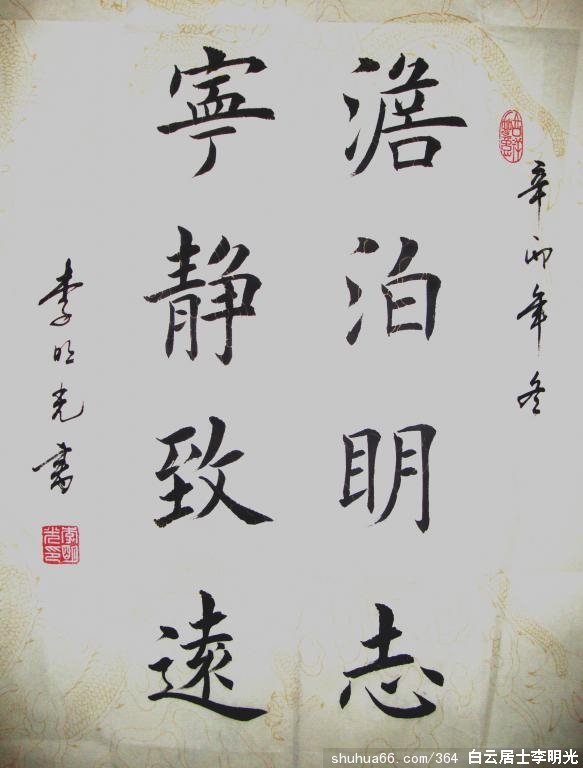 辛卯年冬
澹泊明志
寧静致遠
李明光書
李明光印
shuhua66.com/364 白云居士李明光